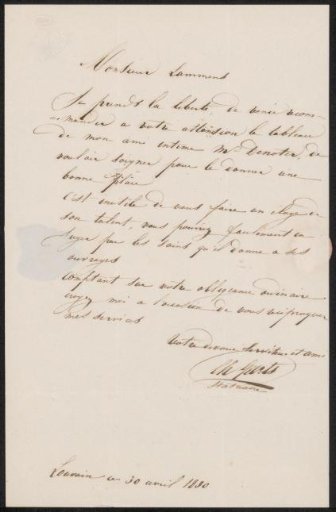 Monsieur Lammens
Je prends la liberté de venir recom-
mander a votre attention le tableau
de mon ami intime Mr Denoter, de
vouloir soigner pour lui donner une
bonne place
c'est inutile de vous faire un éloge de
son talent, vous pouvez facilement en
juger par les soins qu'il donne a ses
ouvrages
comptant sur votre obligeance ordinaire
croyez moi a l'occasion de vous réciproquer
mes services
Votre dévoué serviteur et ami
Ch Geerts
Statuaire
Louvain ce 30 avril